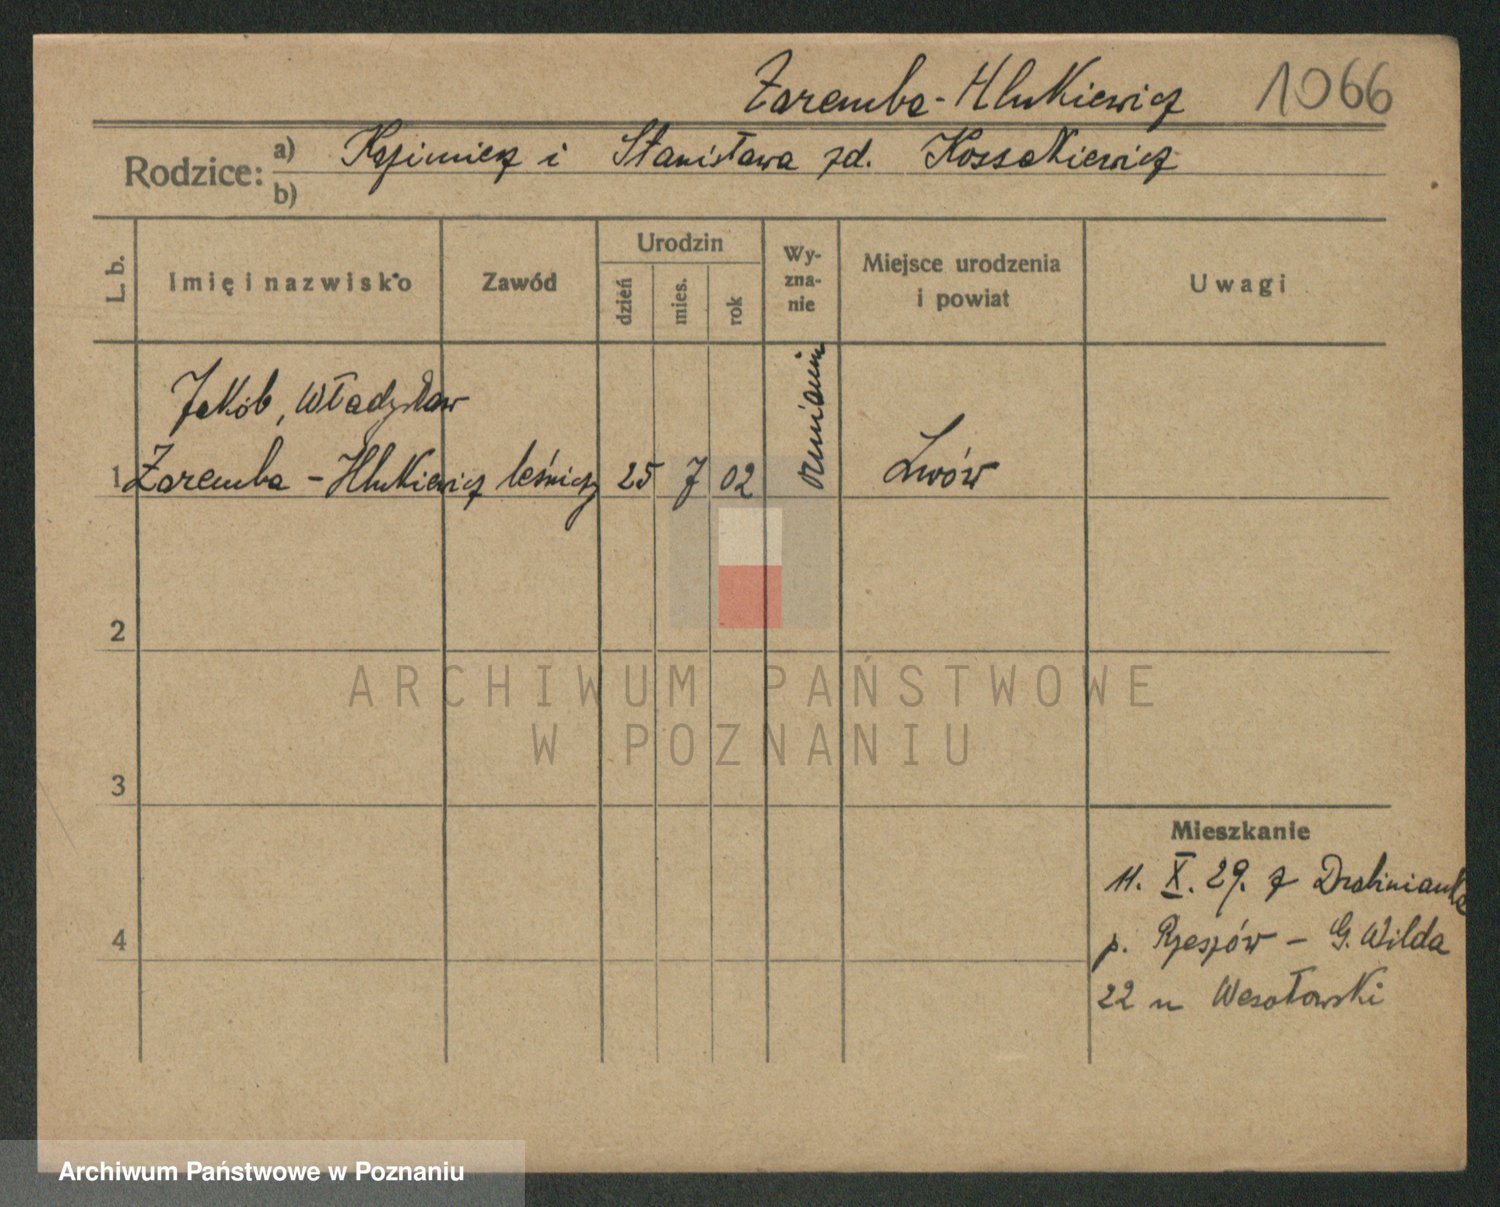 Zaremba-Hlukiewicz 1066
Rodzice: a) Kazimierz i Stanisława zd. Kossakiewicz
b)
L. b. Imię i nazwisko Zawód Urodzin dzień mies. rok Wy-zna-nie Miejsce urodzenia i powiat Uwagi
Jakób, Władysław
1 Zaremba-Hlukiewicz leśniczy 25 7 02 ormianin Lwów
2
ARCHIWUM PAŃSTWOWE
W POZNANIU
3
Mieszkanie
11. X. 29. z Drabinianka
4 p. Rzeszów - G. Wilda
22 u Wesołowski
Archiwum Państwowe w Poznaniu